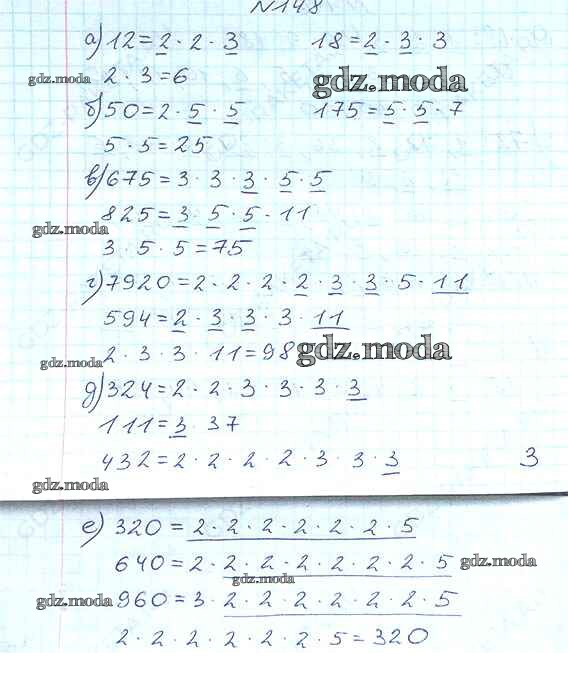 N148
а) 12=2·2·3 18=2·3·3
gdz.moda 2·3=6 gdz.moda
б) 50=2·5·5 175=5·5·7
5·5=25
в) 675=3·3·3·5·5
825=3·5·5·11
gdz.moda
3·5·5=75
г) 7920=2·2·2·2·3·3·5·11
594=2·3·3·3·11
2·3·3·11=98 gdz.moda
gdz.moda
д) 324=2·2·3·3·3·3
111=3·37
432=2·2·2·2·3·3·3 3
gdz.moda
е) 320=2·2·2·2·2·2·5
640=2·2·2·2·2·2·2·5 gdz.moda
gdz.moda
gdz.moda 960=3·2·2·2·2·2·2·5
2·2·2·2·2·2·5=320